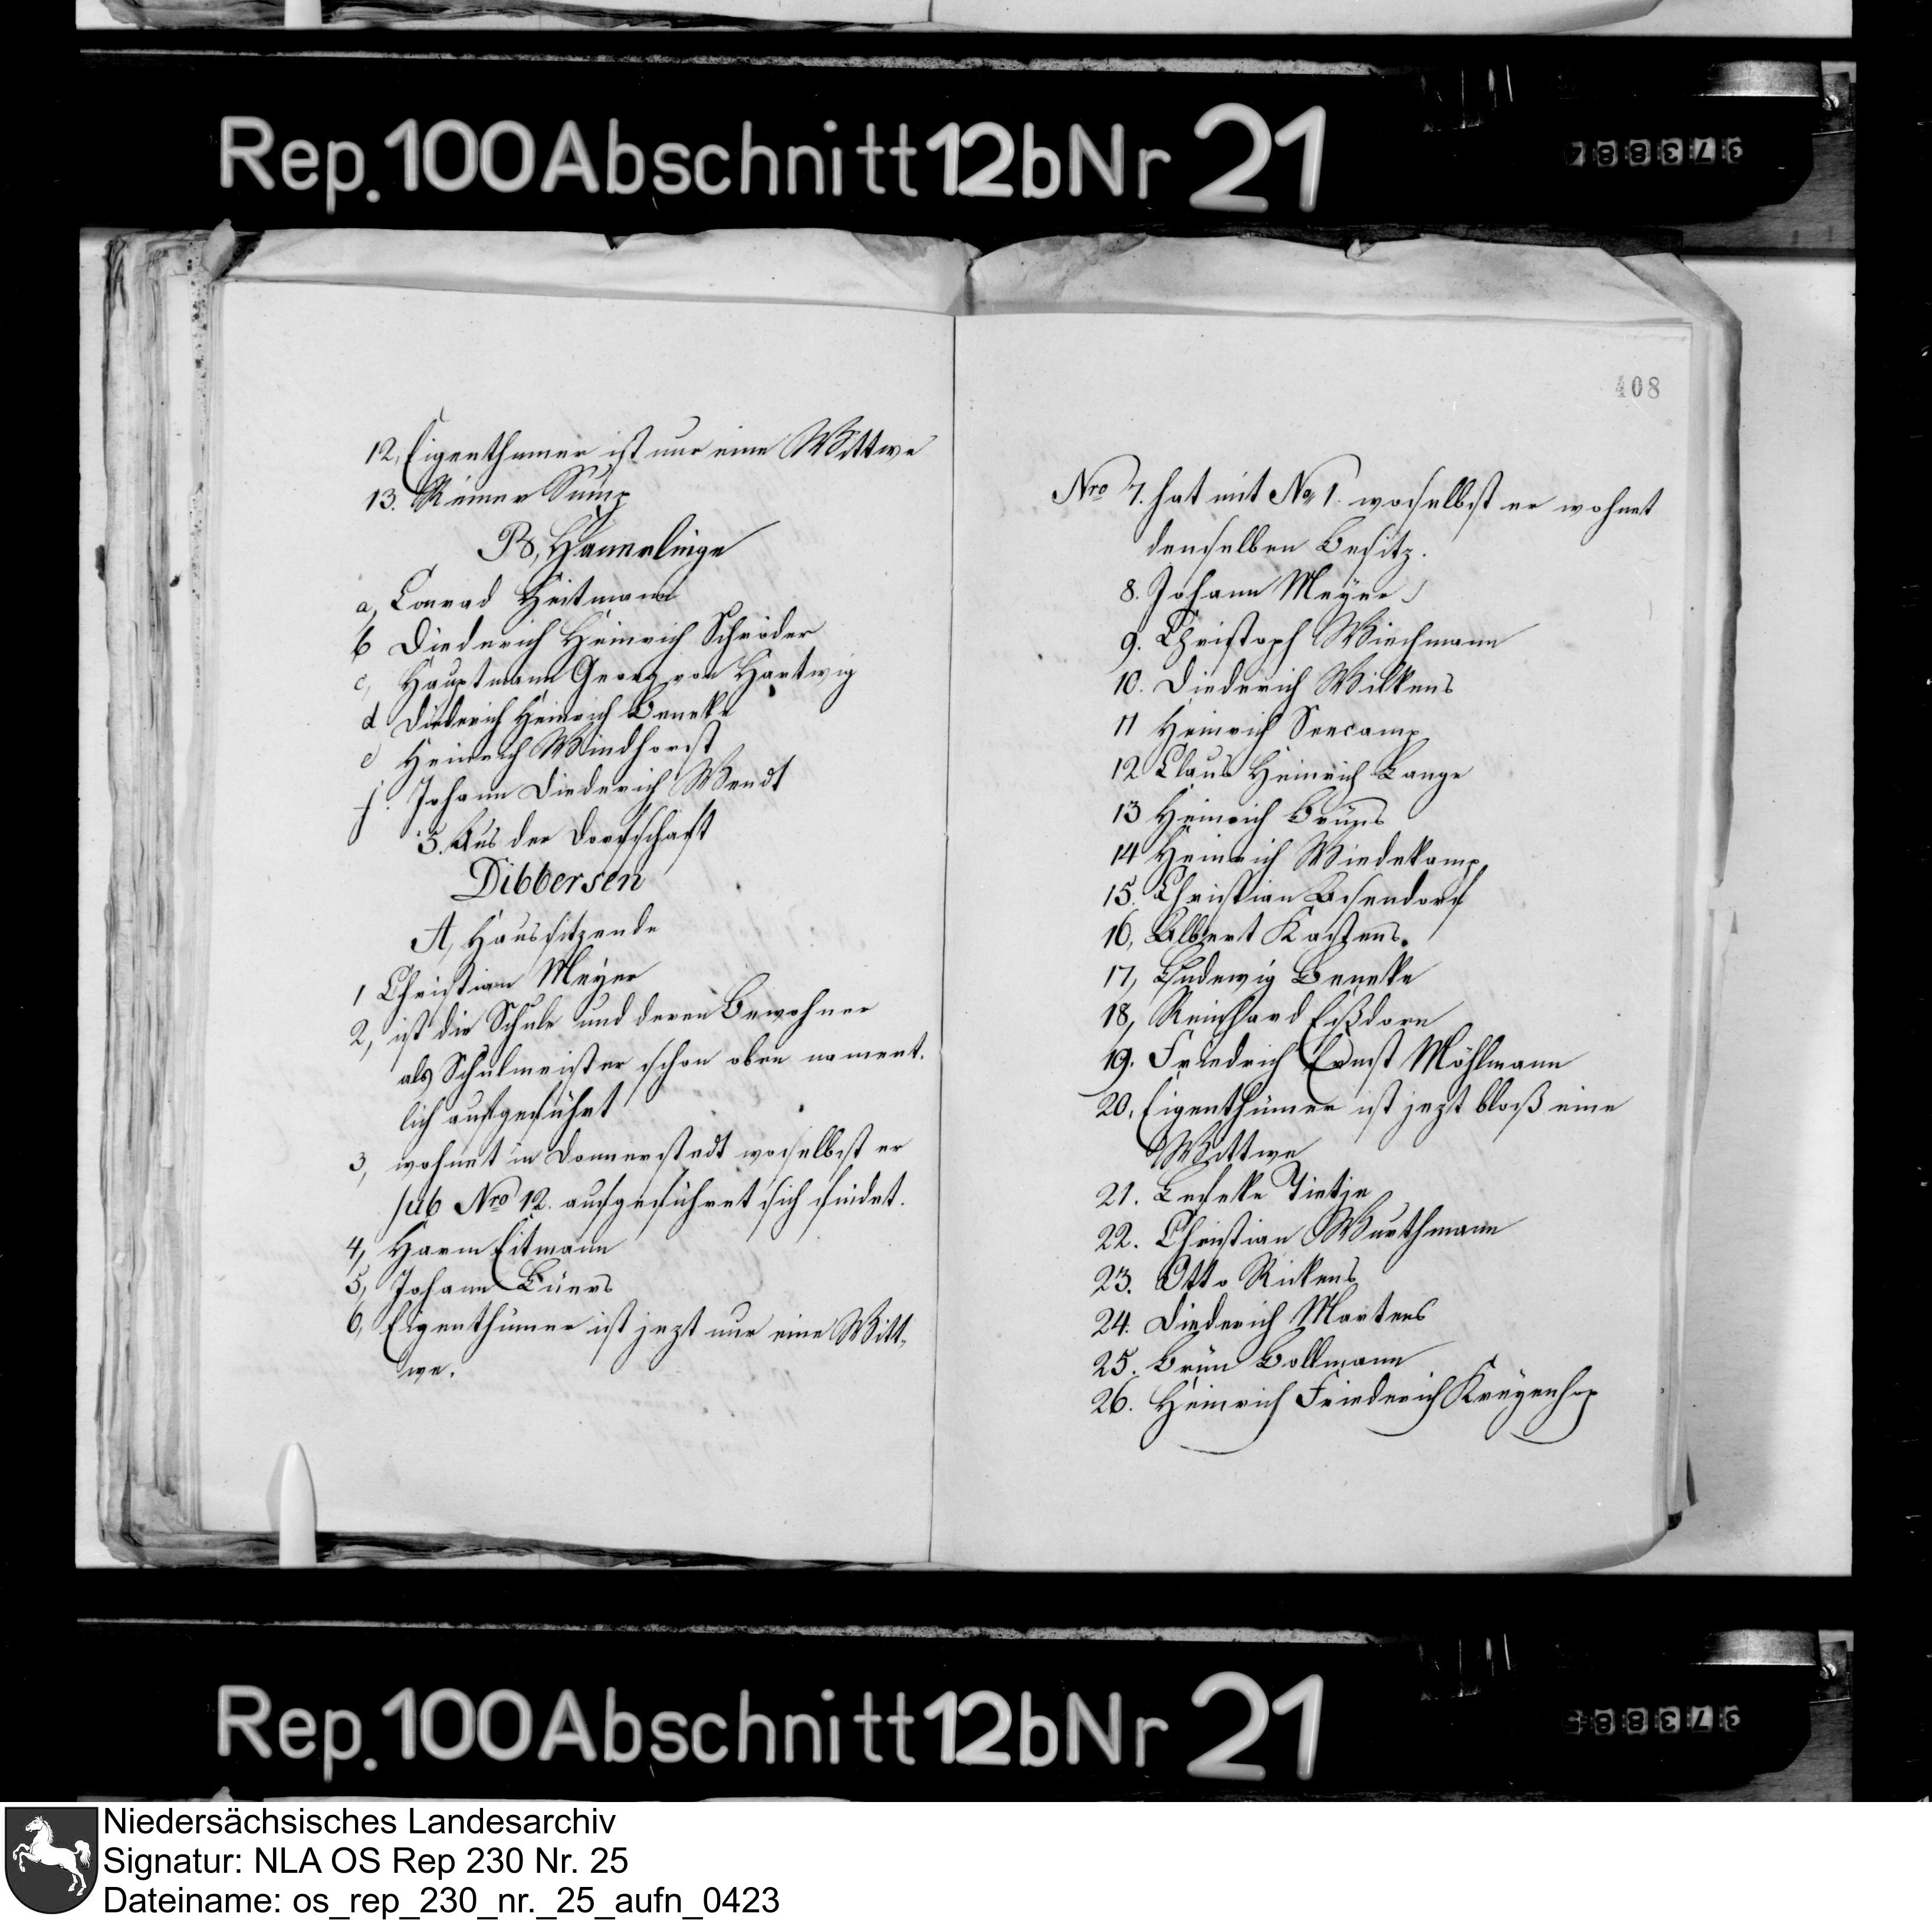 Rep. 100 Abschnitt 12b Nr 21
373884
408
12, Eigenthümer ist nur eine Wittwe
13. Reiner Sump
B, Häuerlinge
a, Conrad Heitmann
b Diederich Heinrich Schröder
c, Hauptmann Georg von Hartwig
d Diederich Heinrich Beneke
e Heinrich Windhorst
f. Johann Diederich Wendt
5. Aus der Dorfschaft
Dibbersen
A, Haussitzende
1 Christian Meyer
2, ist die Schule und deren Bewohner
als Schulmeister schon oben nament-
lich aufgeführt
3, wohnet in Donnerstedt woselbst er
sub Nro 12. aufgeführet sich findet.
4, Harm Eitmann
5, Johann Lüers
6, Eigenthümer ist jezt nur eine Witt-
we.
Nro 7. hat mit No 1. woselbst er wohnet
denselben Besitz.
8. Johann Meyer
9. Christoph Wiechmann
10. Diederich Wilkens
11 Heinrich Seecamp
12 Claus Heinrich Lange
13 Heinrich Brüns
14 Heinrich Wiedekamp
15. Christian Asendorf
16, Albert Kastens.
17, Ludewig Beneke
18, Reinhard Eißdorn
19. Friedrich Ernst Möhlmann
20, Eigenthümer ist jezt bloß eine
Wittwe
21. Tietje
22. Christian Wurthmann
23. Otto Rickens
24. Diederich Martens
25. Brün Bollmann
26. Heinrich Friederich Kreyenhop
Rep. 100 Abschnitt 12b Nr 21
373885
Niedersächsisches Landesarchiv
Signatur: NLA OS Rep 230 Nr. 25
Dateiname: os_rep_230_nr._25_aufn_0423